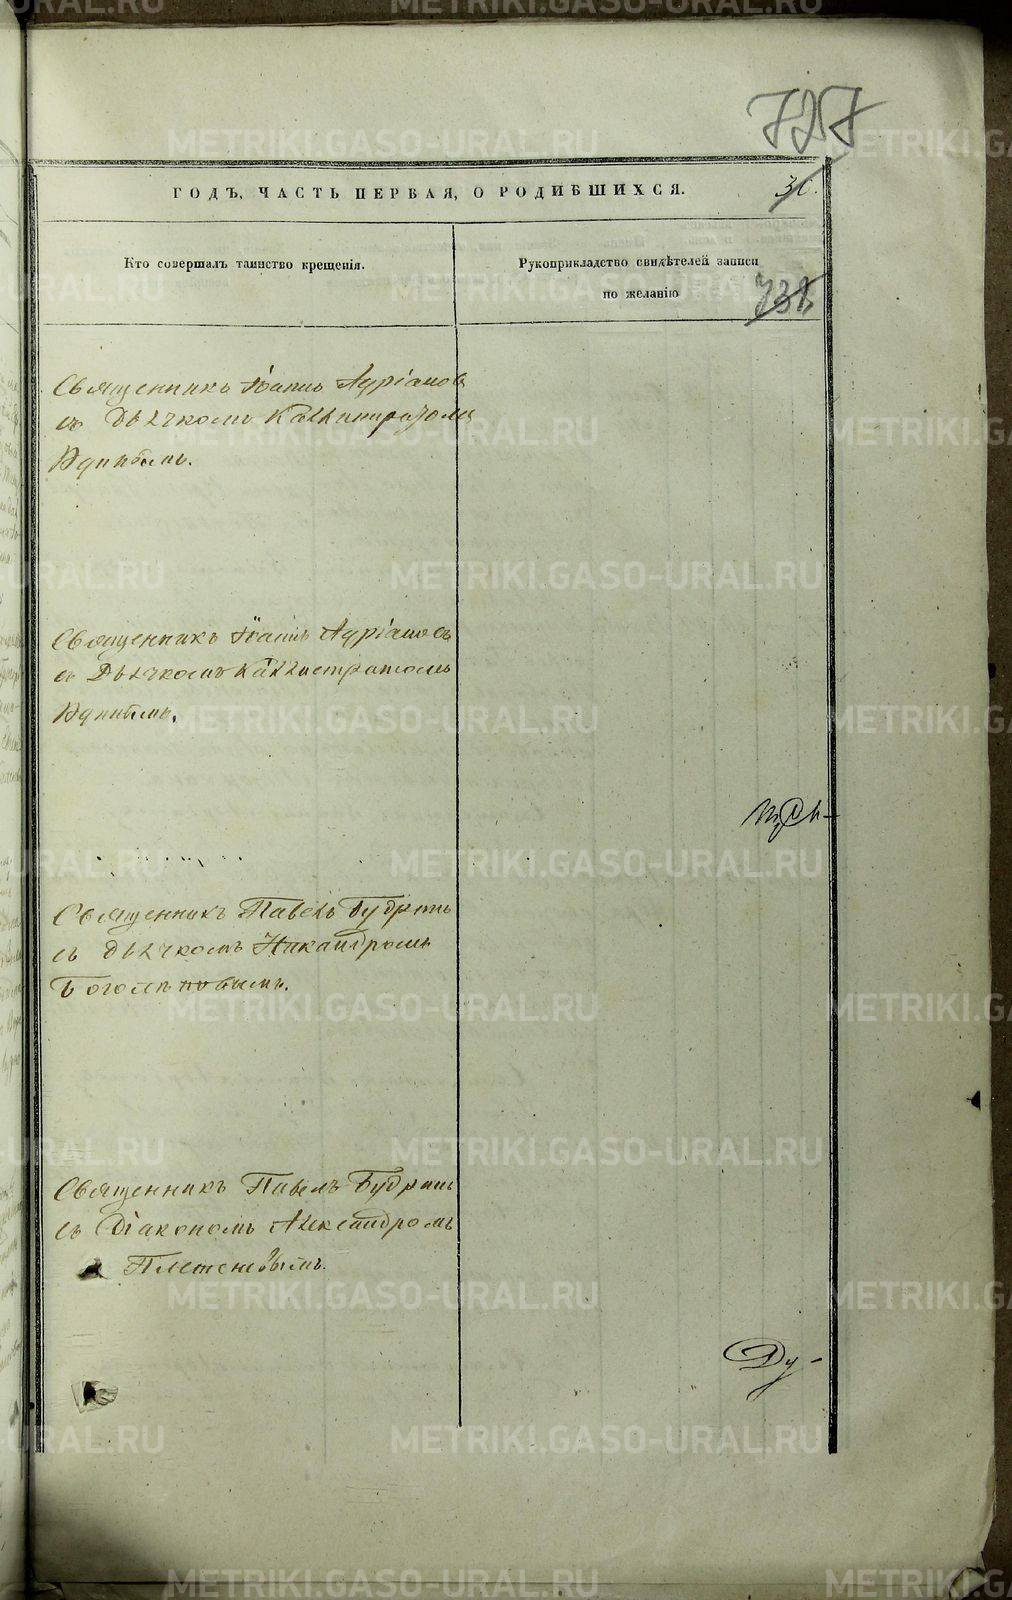 727
ГОДЪ, ЧАСТЬ ПЕРВАЯ, О РОДИВШИХСЯ.
Кто совершалъ таинство крещенія.
Рукоприкладство свидѣтелей записи
по желанію
738
Священникъ Іоаннъ Адріановъ
съ Дьячкомъ Каллистратомъ
Удинцымъ.
Священникъ Іоаннъ Адріановъ
съ Дьячкомъ Каллистратомъ
Священникъ Павелъ Будринъ
съ Дьячкомъ Никандромъ
Боголѣповымъ.
Священникъ Павелъ Будринъ
съ Діакономъ Александромъ
Плетеневымъ.
METRIKI.GASO-URAL.RU